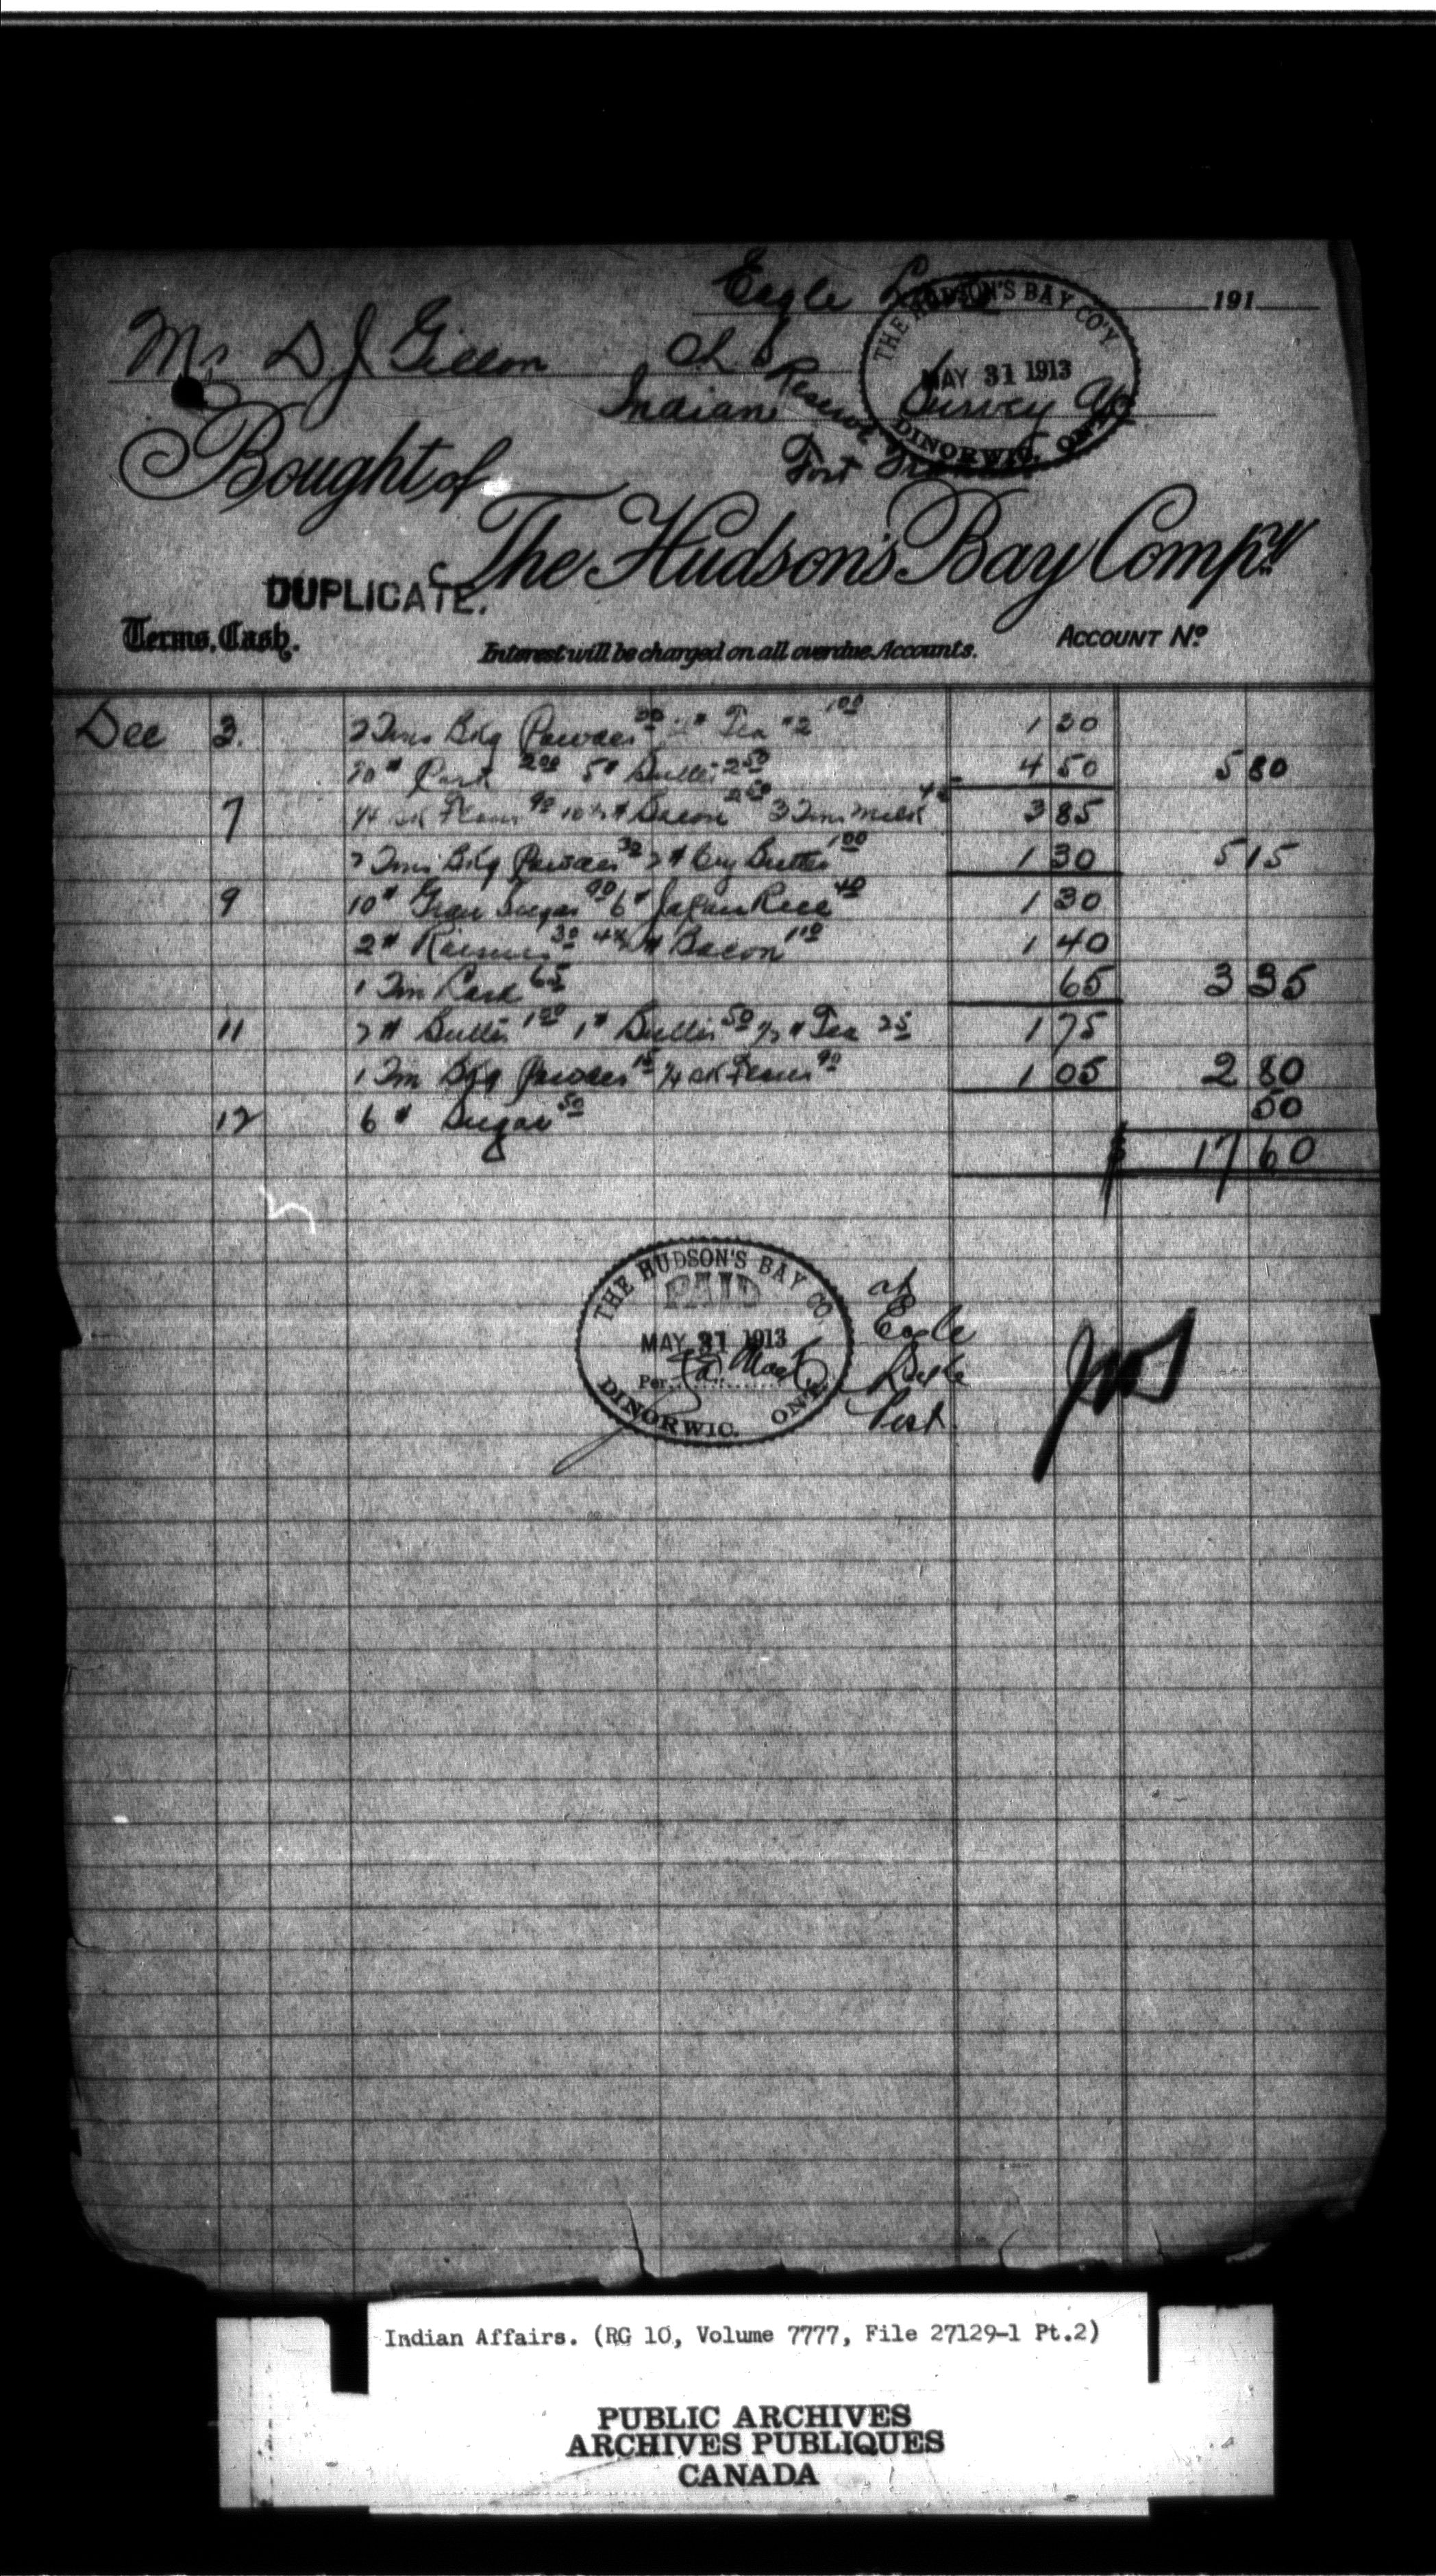 Eagle Lake 191
THE HUDSON'S BAY CO'Y.
MAY 31 1913
DINORWIC, ONT.
Mr D J Gillon O.L.S
Indian Reserve Survey
Fort
Bought of
The Hudson's Bay Compy.
DUPLICATE.
Terms, Cash. Interest will be charged on all overdue Accounts. ACCOUNT No.
Dec 3. 2 Tins Bkg Powder 30 Tea #2 1 00 1 30
20# Pork 2 00 5# Butter 2 50 4 50 5 80
7 1/4 sk Flour 90 10 # Bacon 2 50 3 Tins Milk 45 3 85
2 Tins Bkg Powder 2# Butter 1 00 1 30 5 15
9 10# Gran Sugar 90 6# Japan Rice 40 1 30
2# Raisins 30 4 # Bacon 1 10 1 40
1 Tin Lard 65 65 3 35
11 2# Butter 1 00 1# Butter 50 1/2# Tea 25 1 75
1 Tin Bkg Powder 15 1/4 sk Flour 90 1 05 2 80
12 6# Sugar 50 50
$ 17 60
THE HUDSON'S BAY CO.
PAID
MAY 31 1913
Per
DINORWIC. ONT.
Eagle
Lake
Post.
Indian Affairs. (RG 10, Volume 7777, File 27129-1 Pt.2)
PUBLIC ARCHIVES
ARCHIVES PUBLIQUES
CANADA